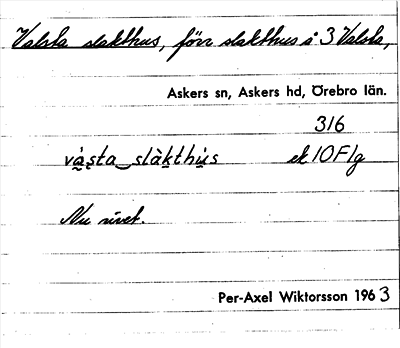 Valsta slakthus, förr slakthus å 3 Valsta,
Askers sn, Askers hd, Örebro län.
316
vá̱sta‿slàkthu̱s ek 10F1g
Nu rivet.
Per-Axel Wiktorsson 1963